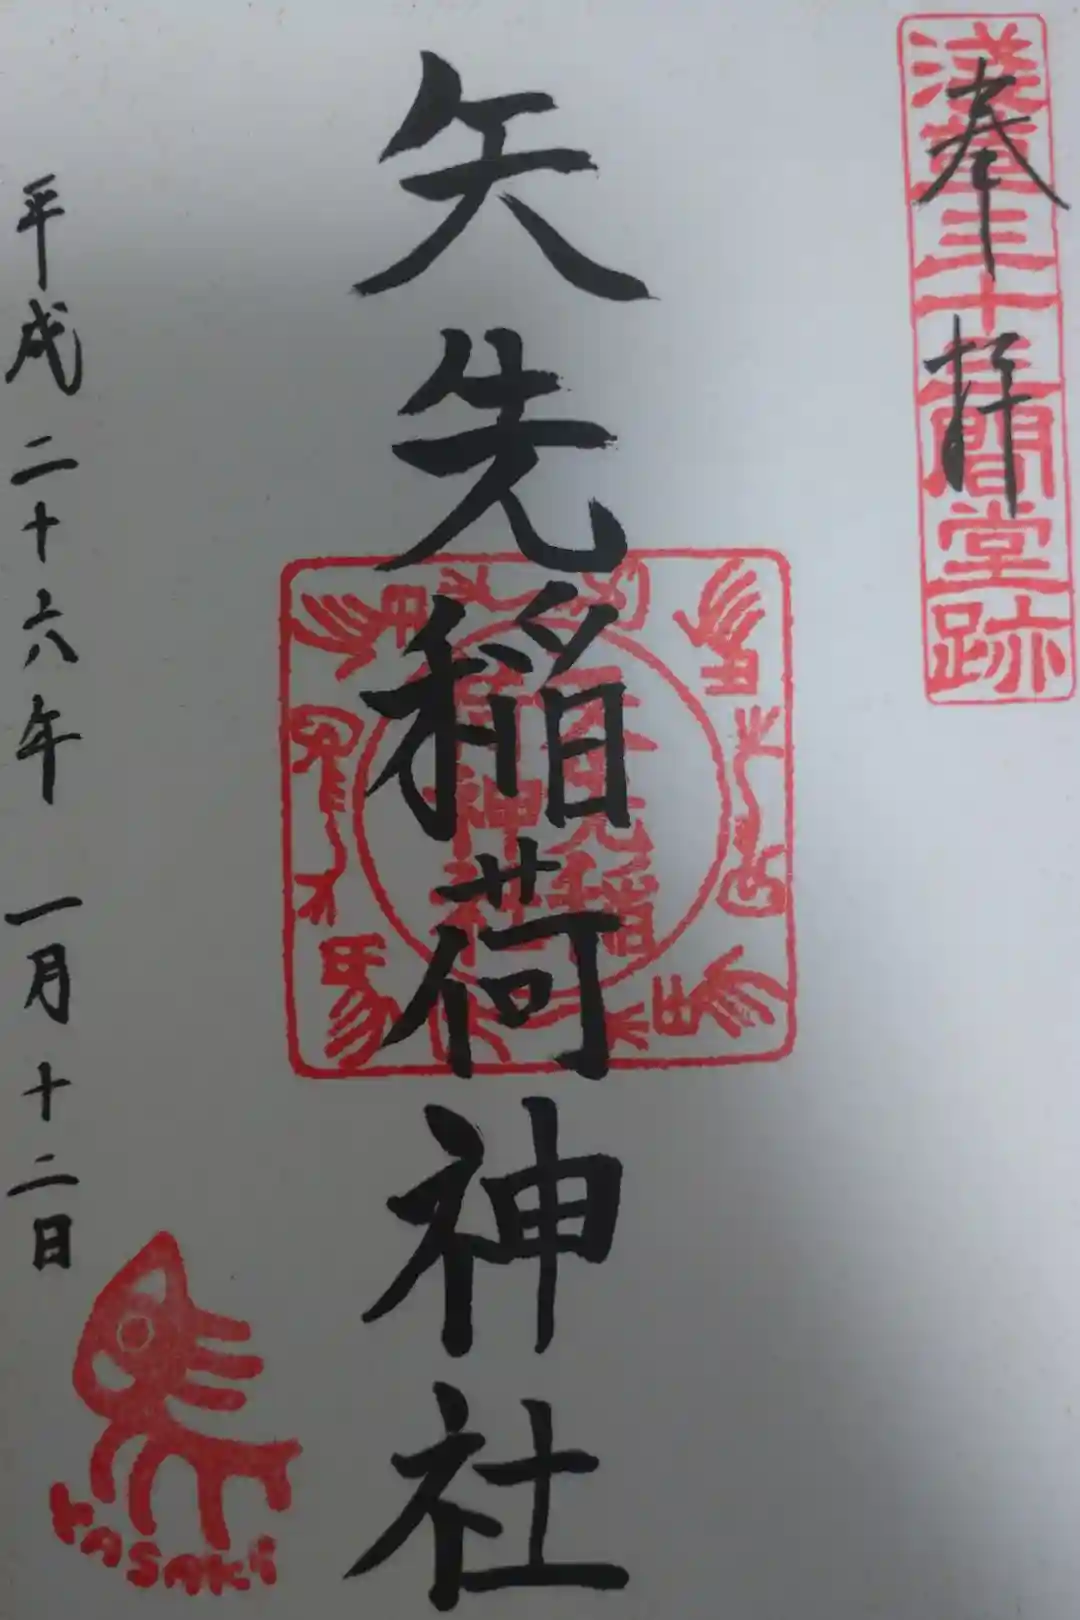 奉拝
淺草三十三間堂跡
矢先稲荷神社
矢先稲
神社
平成二十六年 一月十二日